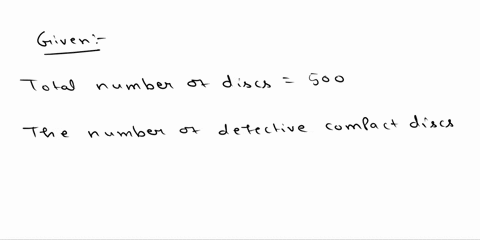 Given:-
Total number of discs = 500
The number of defective compact discs